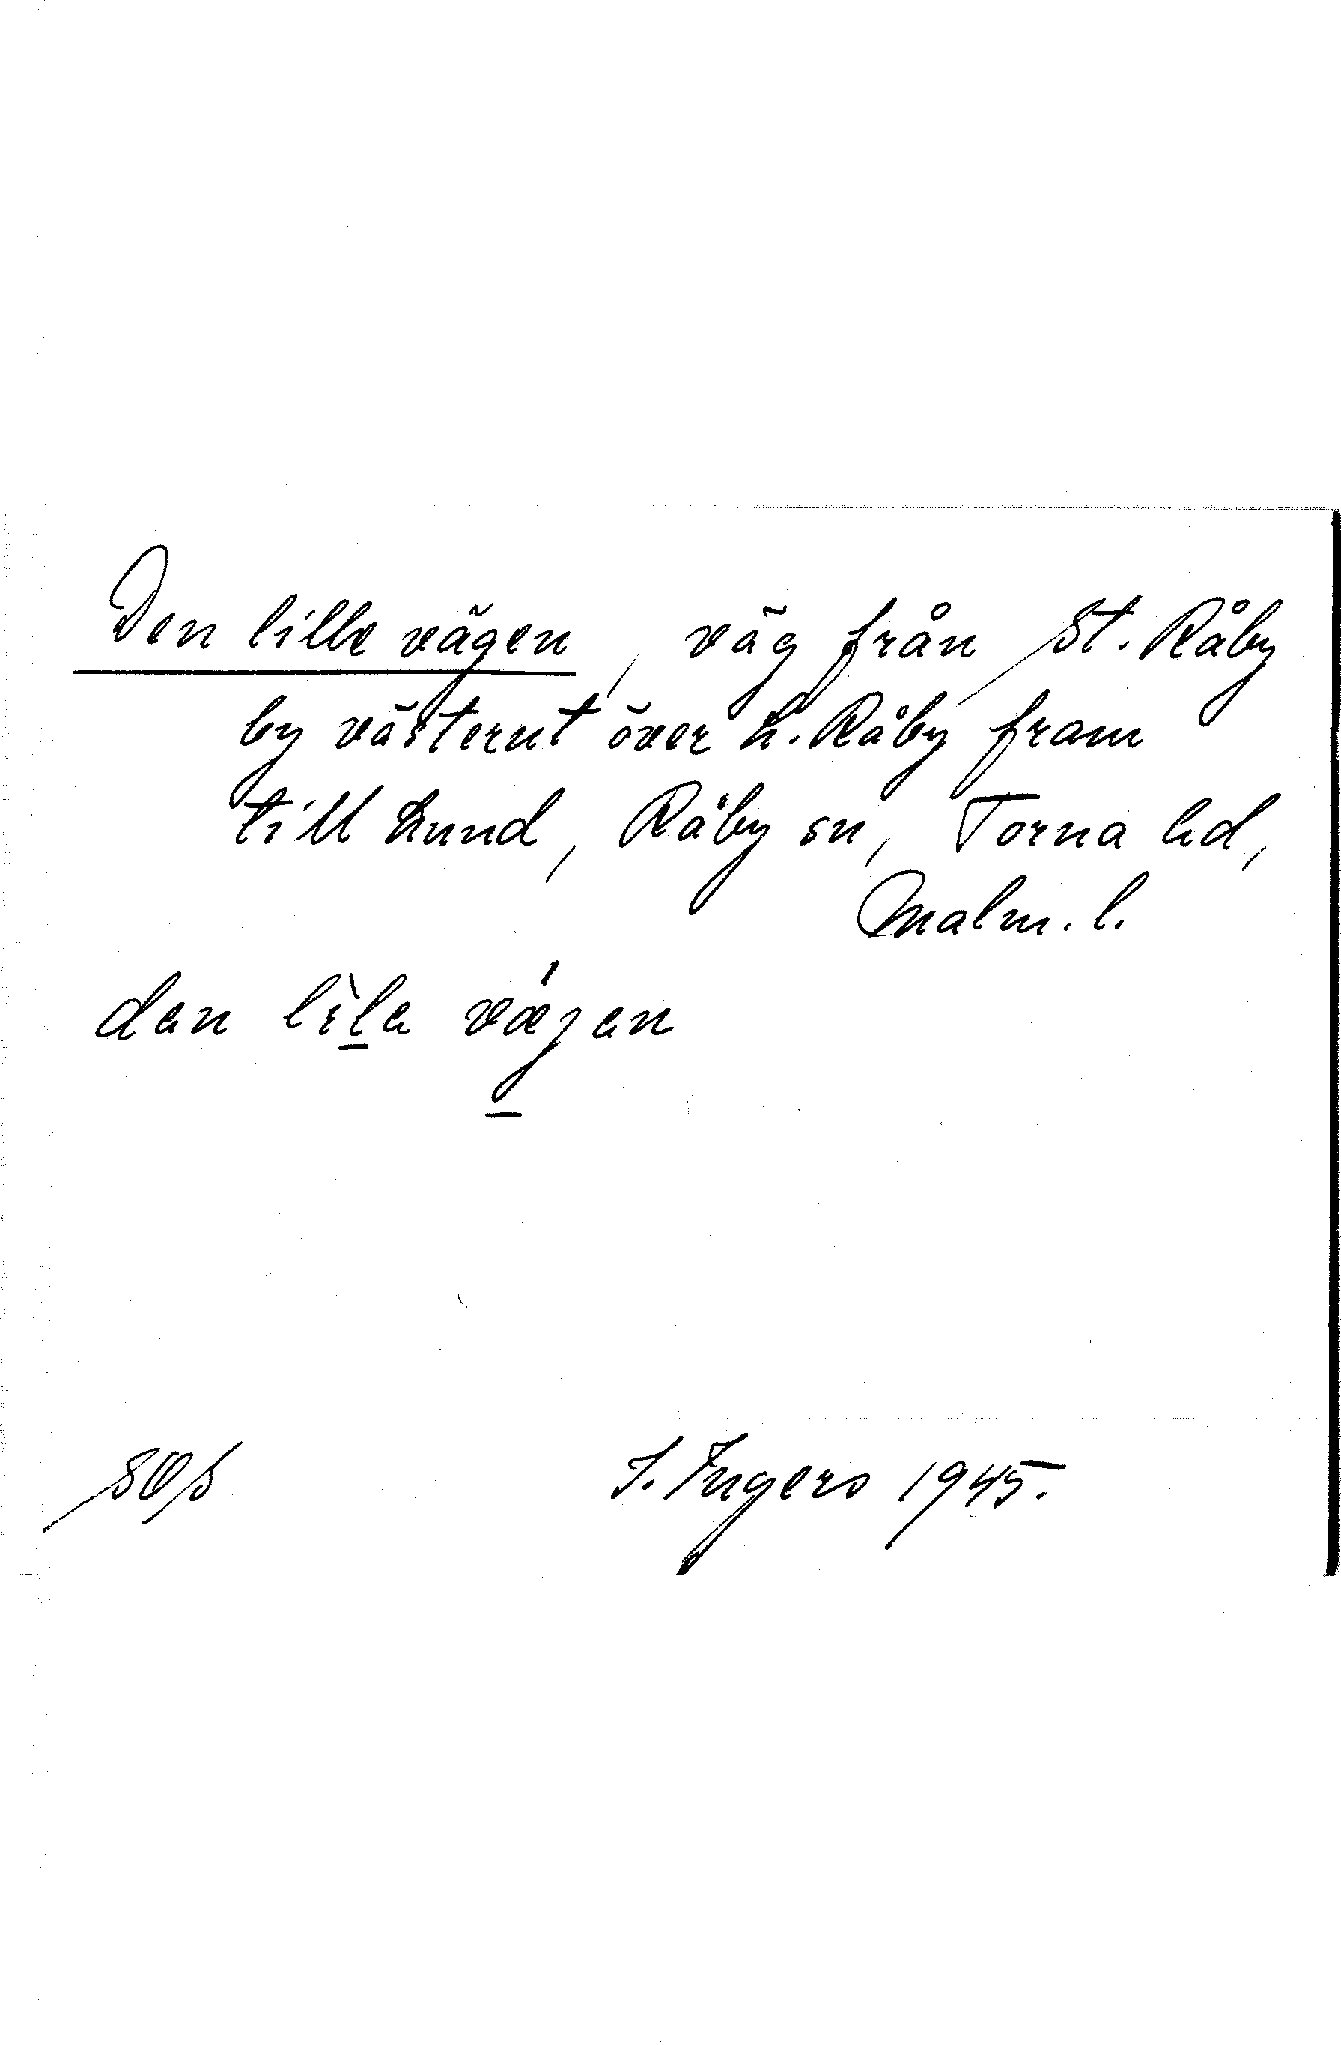 Den lille vägen, väg från St. Råby
by västerut över L. Råby fram
till Lund, Råby sn, Torna hd,
Malm. l.
dan lìla vǽjan
SOS I. Ingers 1945.